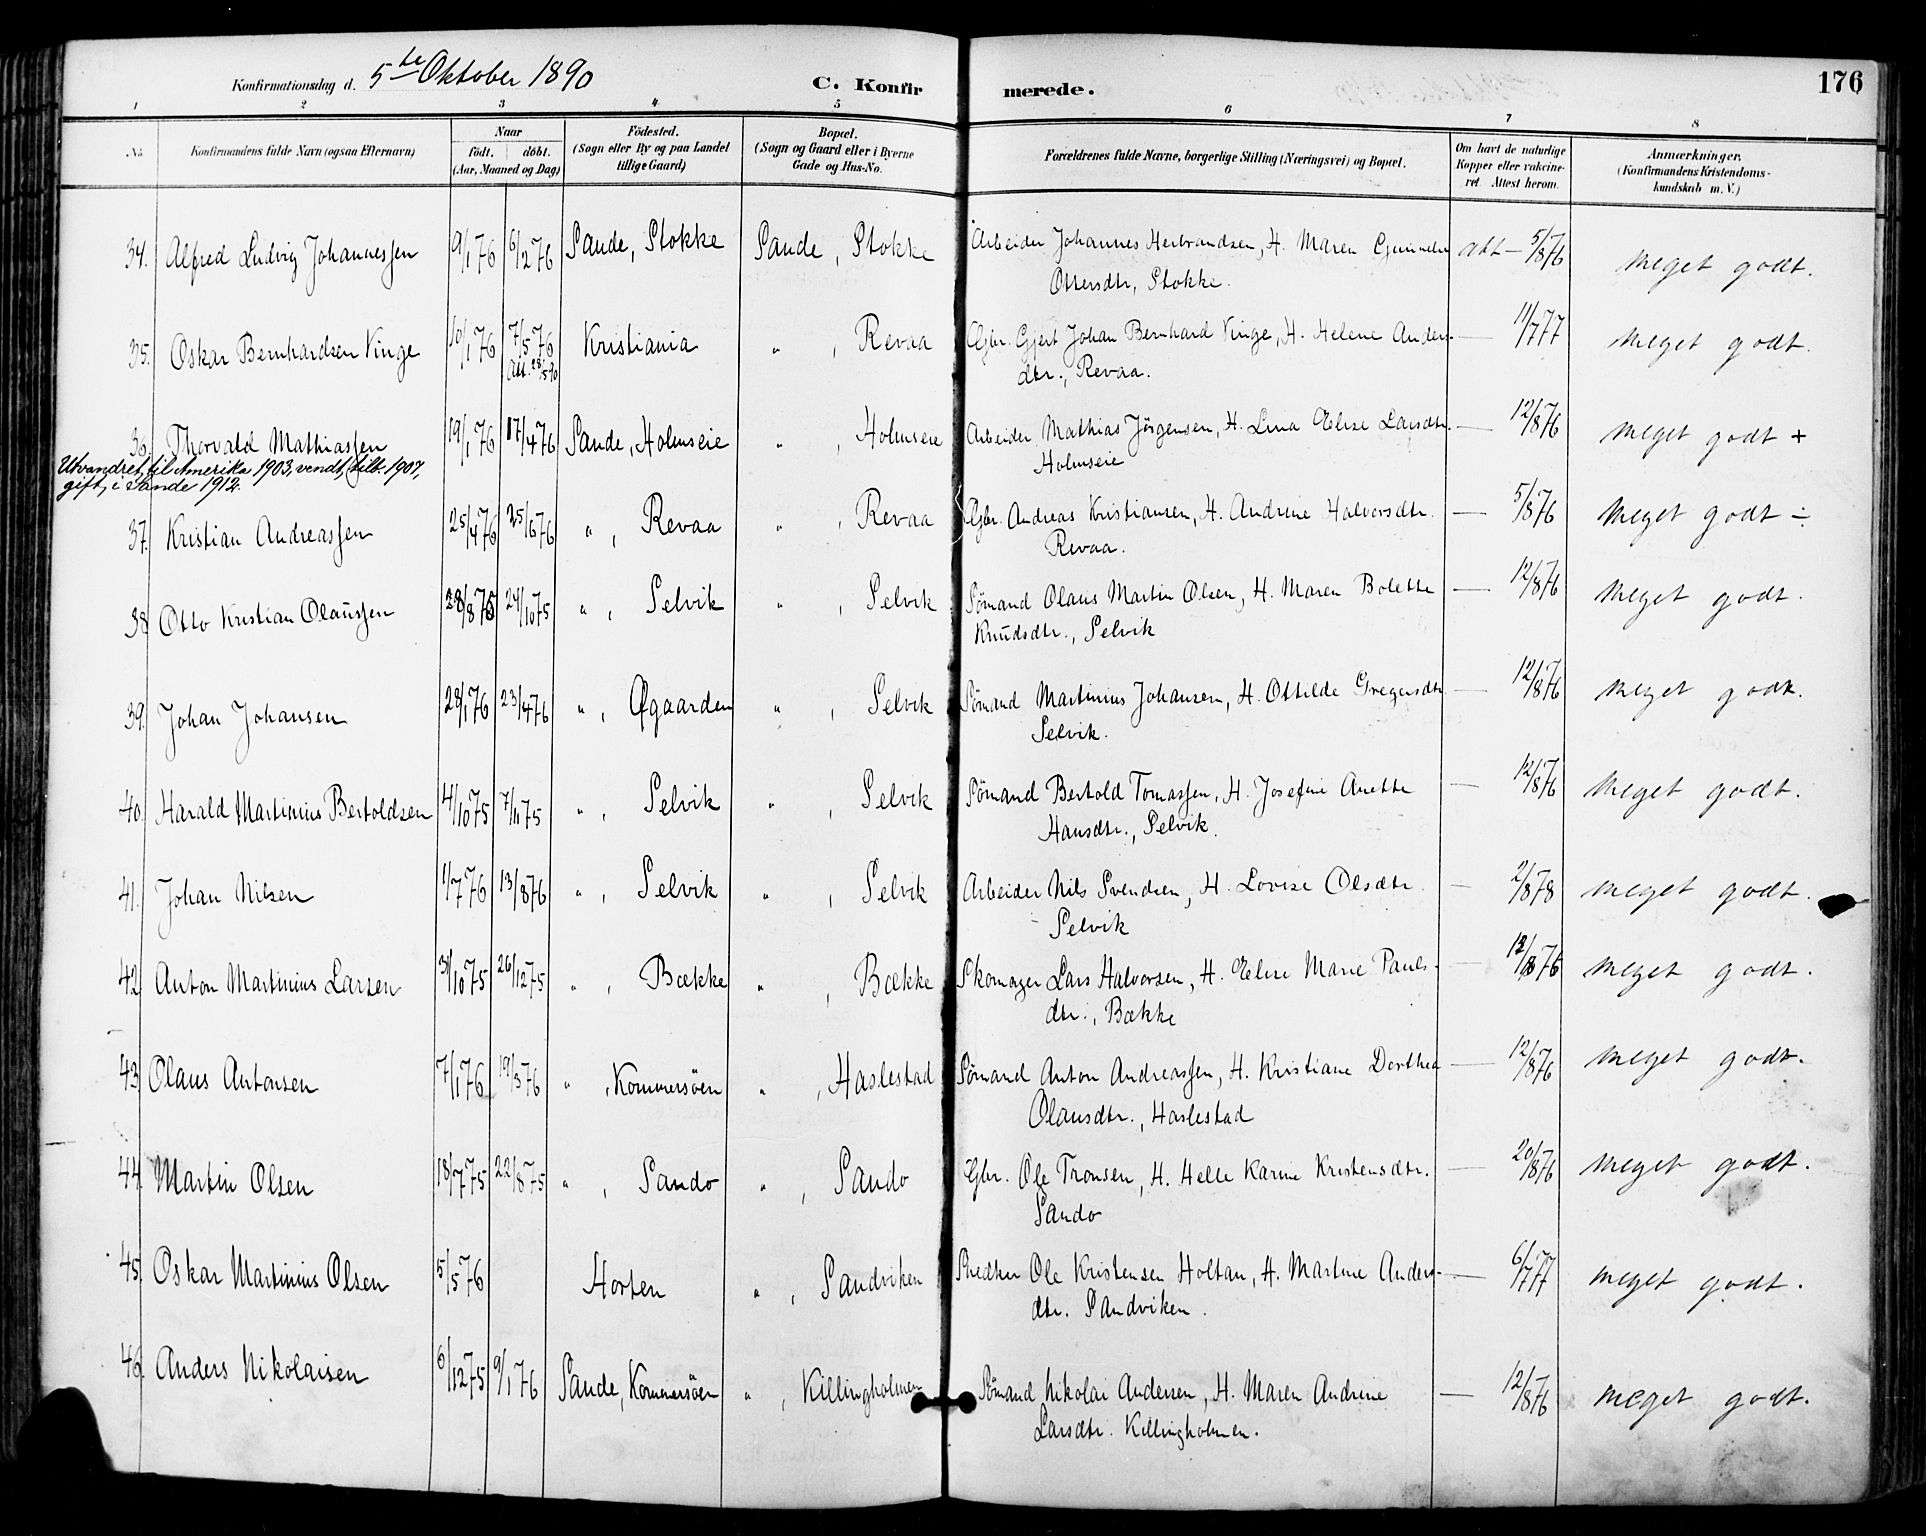 Konfirmationsdag d. 5te Oktober 1890 C. Konfir merede. 176
1 2 3 4 5 6 7 8
No. Konfirmandens fulde Navn (ogsaa Efternavn) Naar født. døbt. (Aar, Maaned og Dag) Fødested. (Sogn eller By og paa Landet tillige Gaard) Bopæl. (Sogn og Gaard eller i Byerne Gade og Hus-No. Forældrenes fulde Navne, borgerlige Stilling (Næringsvei) og Bopæl. Om havt de naturlige Kopper eller vakcineret. Attest herom. Anmærkninger. (Konfirmandens Kristendomskundskab m. V.)
34. Alfred Ludvig Johannessen 9/1 76 6/2 76 Sande, Stokke Sande, Stokke Arbeider Johannes Herbrandsen, H. Maren Gunnelie att - 5/8 76 meget godt.
Ottersdtr, Stokke.
35. Oskar Bernhardsen Vinge 10/1 76 7/5 76 Kristiania " , Revaa Gbr. Gjert Johan Bernhard Vinge, H. Helene Anders- — 11/7 77 meget godt.
Att. 28/5 90 dtr., Revaa.
36. Thorvald Mathiassen 19/1 76 17/4 76 Sande, Holmseie " , Holmseie Arbeider Mathias Jørgensen, H. Lina Elise Larsdtr. — 12/8 76 meget godt +
Holmseie
Utvandret til Amerika 1903, vendt tilb. 1907,
gift i Sande 1912.
37. Kristian Andreassen 25/4 76 25/6 76 " , Revaa " , Revaa Gbr. Andreas Kristiansen, H. Andrine Halvorsdtr. — 5/8 76 meget godt ÷
Revaa.
38 Otto Kristian Olaussen 28/8 75 24/10 75 " , Selvik " , Selvik Sømand Olaus Martin Olsen, H. Maren Bolette — 12/8 76 meget godt.
Knudsdtr., Selvik
39. Johan Johansen 28/1 76 23/4 76 " , Øfgaarden " , Selvik Sømand Martinius Johansen, H. Ottilde Gregersdtr — 12/8 76 meget godt.
Selvik.
40. Harald Martinius Bertoldsen 4/10 75 7/11 75 " , Selvik " , Selvik Sømand Bertold Tomassen, H. Josefine Anette — 12/8 76 meget godt.
Hansdtr., Selvik.
41. Johan Nilsen 1/7 76 13/8 76 " , Selvik " , Selvik Arbeider Nils Svendsen, H. Lovise Olsdtr. — 2/8 78 meget godt.
Selvik
42. Anton Martinius Larsen 31/10 75 26/12 75 " , Bække " , Bække Skomager Lars Halvorsen, H. Elise Marie Pauls- — 12/8 76 meget godt.
dtr., Bække
43. Olaus Antonsen 7/1 76 19/3 76 " , Kommersøen " , Haslestad Sømand Anton Andreassen, H. Kristiane Dorthea — 12/8 76 meget godt.
Olausdtr., Haslestad
44. Martin Olsen 18/7 75 22/8 75 " , Sando " , Sando Gbr. Ole Tronsen, H. Helle Karine Kristensdtr. — 20/8 76 meget godt.
Sando
45. Oskar Martinius Olsen 5/5 76 Horten " , Sandviken Snedker Ole Kristensen Holtan, H. Martine Anders- — 6/7 77 meget godt.
dtr. Sandviken.
46. Anders Nikolaisen 6/12 75 9/1 76 Sande, Kommersøen " , Killingholmen Sømand Nikolai Andersen, H. Maren Andrine — 12/8 76 meget godt.
Larsdtr. Killingholmen.